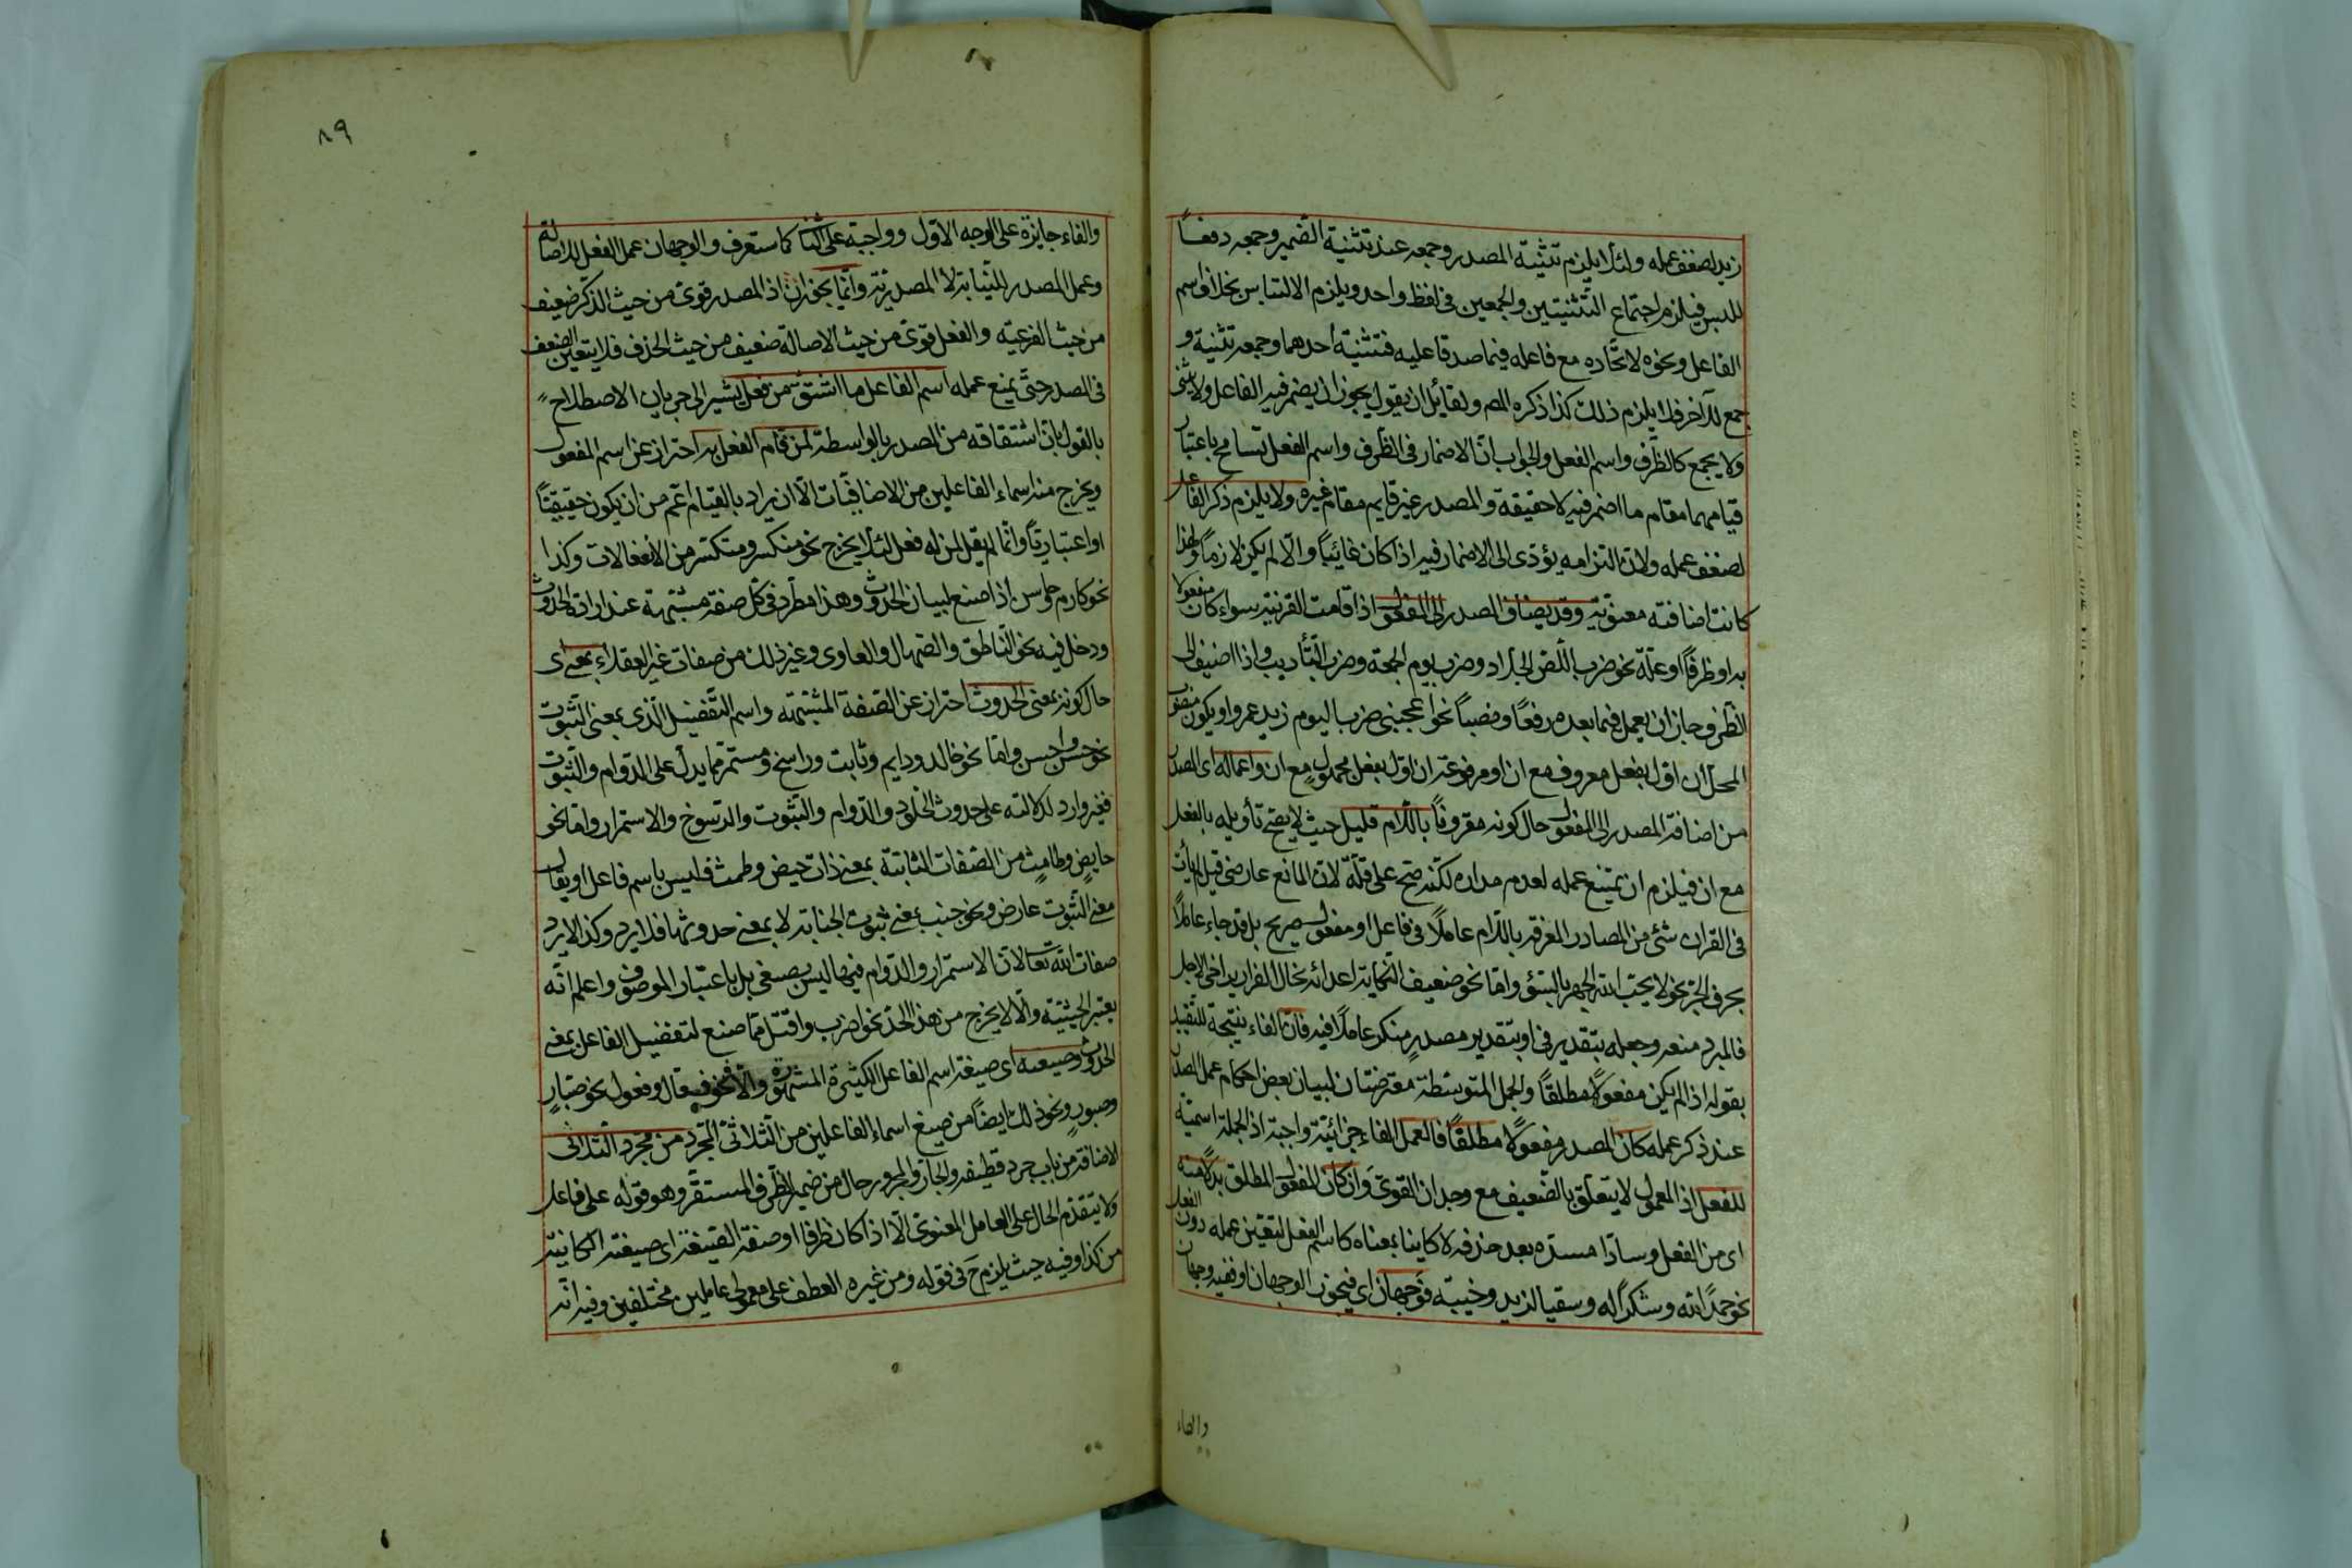 زيد لضعف عمله ولئلا يلزم تثنية المصدر وجمعه عند تثنية الضمير وجمعه دفعاً
للبس فيلزم اجتماع التثنيتين والجمعين في لفظ واحد ويلزم الالتباس بخلاف اسم
الفاعل ونحوه لاتحاده مع فاعله فيما صدقا عليه فتثنية أحدهما وجمعه تثنية و
جمع للآخر فلا يلزم ذلك كذا ذكره المصـ ولقائل ان يقول يجوز ان يضمر فيه الفاعل ولا يثنى
ولا يجمع كالظرف واسم الفعل والجواب ان الاضمار في الظرف واسم الفعل تسامح باعتبار
قيامهما مقام ما اضمر فيه لا حقيقة والمصدر غير قايم مقام غيره ولا يلزم ذكر الفاعل
لضعف عمله ولان التزامه يؤدى الى الاضمار فيه اذا كان غائباً والا لم يكن لازماً ولهذا
كانت اضافته معنوية وقد يضاف المصدر الى المفعول اذا قامت القرينة سواء كان مفعولا
به او ظرفاً او علة نحو ضرب اللص الجلاد وضرب يوم الجمعة وضرب التأديب واذا اضيف الى
الظرف جاز ان يعمل فيما بعده رفعاً ونصباً نحو اعجبنى ضرب اليوم زيد عمروا ويكون منصوب
المحل ان اول بفعل معروف مع ان او مرفوعه ان اول بفعل مجهول مع ان واعماله اى المصدر
من اضافة المصدر الى المفعول حال كونه مقروناً باللام قليل حيث لا يصح تأويله بالفعل
مع ان فيلزم ان يمتنع عمله لعدم مداره لكنه صح على قلة لان المانع عارضى قيل لم يأت
في القران شئ من المصادر المعرفة باللام عاملاً في فاعل او مفعول صريح بل قد جاء عاملاً
بحرف الجر نحو لا يحب الله الجهر بالسوء واما نحو ضعيف النكاية اعدائه يخال الفرار يراخى الاجل
فالمبرد منعه وجعله بتقدير في او بتقدير مصدر منكر عاملاً فيه فان الفاء نتيجة للتقييد
بقوله اذا لم يكن مفعولاً مطلقاً والجمل المتوسطة معترضتان لبيان بعض احكام عمل المصدر
عند ذكر عمله كان المصدر مفعولاً مطلقاً فالعمل الفاء جزائية واجبة اذ الجملة اسمية
للفعل اذ المعمول لا يتعلق بالضعيف مع وجدان القوى وان كان المفعول المطلق بدلاً منه
اى من الفعل وسادّا مسدّه بعد حذفه لا كاينا بمعناه كاسم الفعل لتعين عمله دون الفعل
نحو حمداً لله وشكراً له وسقيا لزيد وخيبة فوجهان اى فيجوز الوجهان او ففيه وجهان
والفاء
٨٩
والفاء جايزة على الوجه الاول وواجبة على الثانى كما ستعرف والوجهان عمل الفعل للاصالة
وعمل المصدر للنيابة لا المصدرية وانما يجوزان اذ المصدر قوى من حيث الذكر ضعيف
من حيث الفرعية والفعل قوى من حيث الاصالة ضعيف من حيث الحذف فلا يتعين الضعف
في المصدر حتى يمنع عمله اسم الفاعل ما اشتق من فعل يشير الى جريان الاصطلاح
بالقول بان اشتقاقه من المصدر بالواسطة لمن قام الفعل به احتراز عن اسم المفعول
ويخرج منه اسماء الفاعلين من الاضافيات الا ان يراد بالقيام اعم من ان يكون حقيقيّاً
او اعتباريّاً وانما لم يقل لمن له فعل لئلا يخرج نحو منكسر ومتكسر من الانفعالات وكذا
نحو كارم حواسن اذا صنع لبيان الحدوث وهذا مطرد في كل صفة مشبهة عند ارادة الحدوث
ودخل فيه نحو الناطق والصهال والعاوى وغير ذلك من صفات غير العقلاء بمعنى اى
حال كونه بمعنى الحدوث احتراز عن الصفة المشبهة واسم التفضيل الذى بمعنى الثبوت
نحو حسن واحسن واما نحو خالد ودايم وثابت وراسخ ومستمر مما يدل على الدوام والثبوت
فغير وارد لدلالته على حدوث الخلود والدوام والثبوت والرسوخ والاستمرار واما نحو
حايض وطامث من الصفات الثابتة بمعنى ذات حيض وطمث فليس باسم فاعل او يقال
معنى الثبوت عارض ونحو جنب بمعنى ثبوت الجنابة لا بمعنى حدوثها فلا يرد وكذا لا يرد
صفات الله تعالى لان الاستمرار والدوام فيها ليس بصيغى بل باعتبار الموصوف واعلم انه
يعتبر الحيثية والا لا يخرج من هذا الحد نحو اضرب واقتل مما صنع لتفضيل الفاعل بمعنى
الحدوث وصيغه اى صيغة اسم الفاعل الكثيرة المشهورة والا فنحو فعال وفعول نحو صبّار
وصبور ونحو ذلك ايضاً من صيغ اسماء الفاعلين من الثلاثى المجرد من مجرد الثلاثى
الاضافة من باب جرد قطيفة والجار والمجرور حال من ضمير الظرف المستقر وهو قوله على فاعل
ولا يتقدم الحال على العامل المعنوى الا اذا كان ظرفا او صفة الصيغة اى صيغته الكاينة
من كذا وفيه حيث يلزم ح في قوله ومن غيره العطف على معمولى عاملين مختلفين وفيه انه